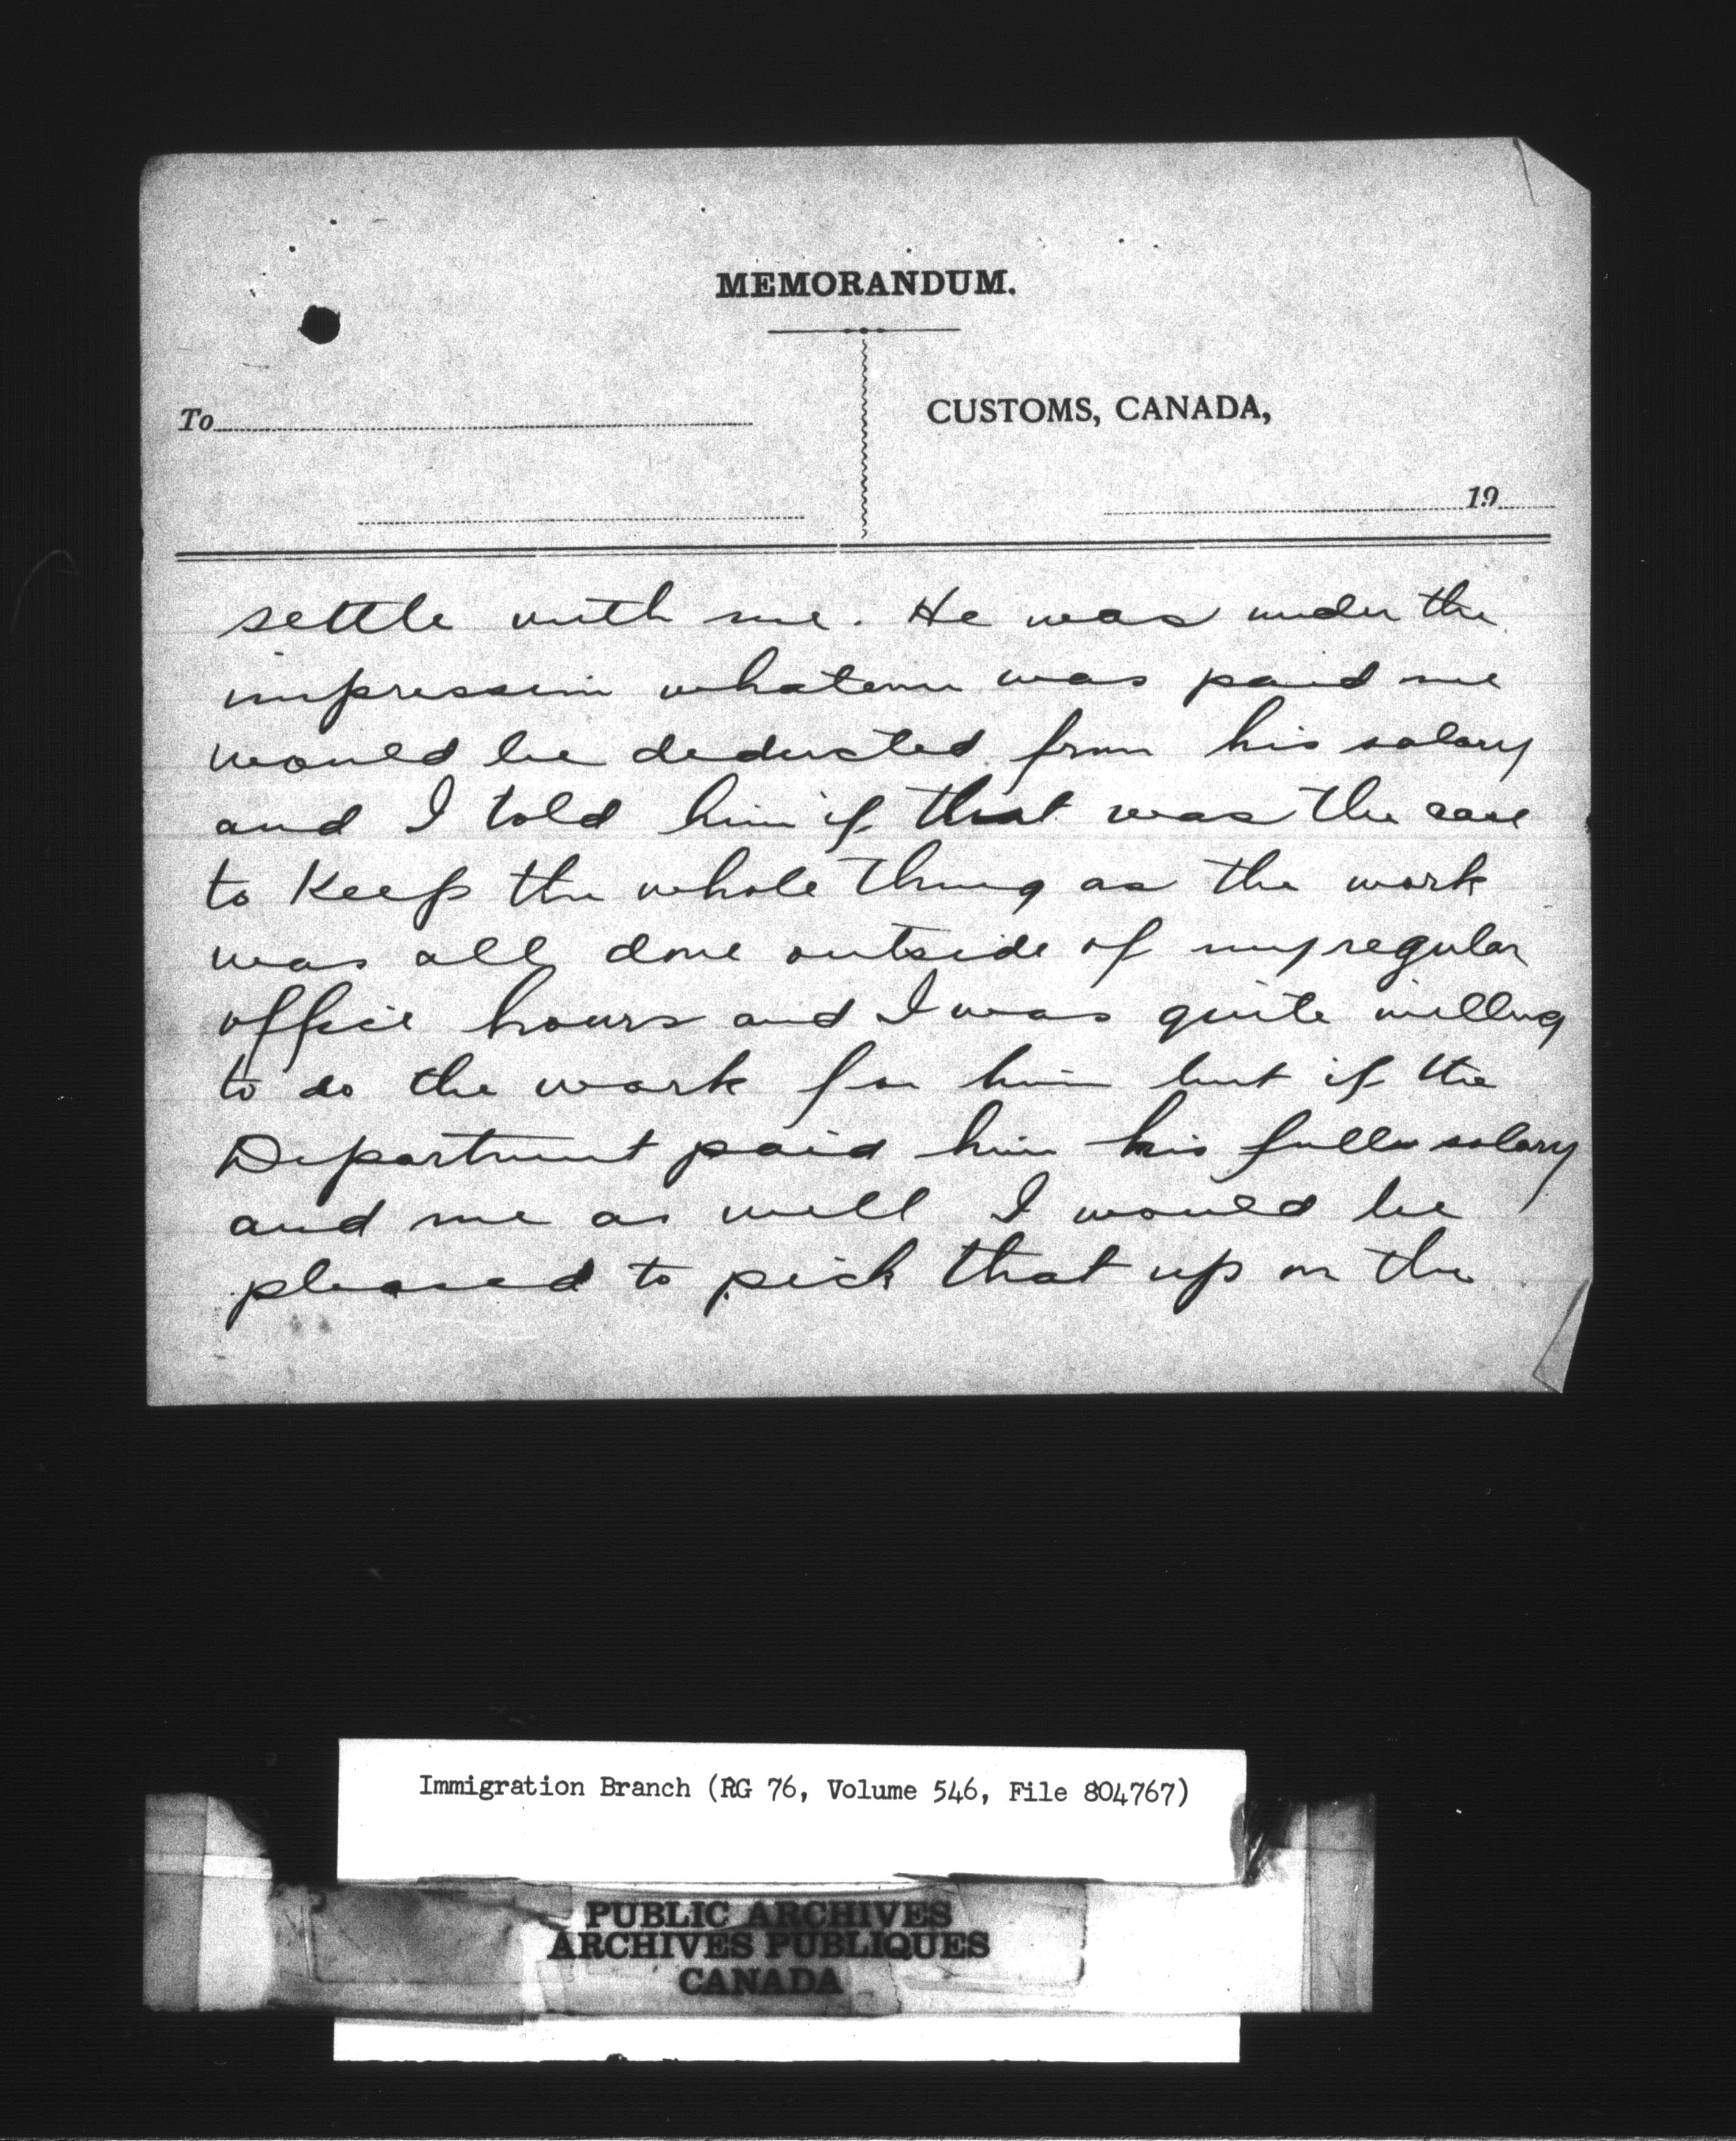 MEMORANDUM.
To
CUSTOMS, CANADA,
19
settle with me. He was under the
impression whatever was paid me
would be deducted from his salary
and I told him if that was the case
to Keep the whole thing as the work
was all done outside of my regular
office hours and I was quite willing
to do the work for him but if the
Department paid him his full salary
and me as well I would be
pleased to pick that up on the
Immigration Branch (RG 76, Volume 546, File 804767)
PUBLIC ARCHIVES
ARCHIVES PUBLIQUES
CANADA